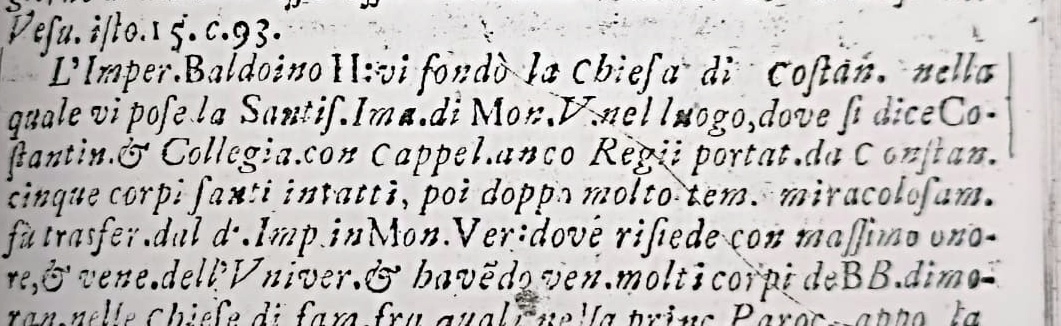 Vesu. isto. 15. c. 93.
L'Imper. Baldoino II: vi fondò la Chiesa di Costan. nella
quale vi pose la Santis. Ima. di Mon. V. nel luogo, dove si dice Co-
stantin. & Collegia. con Cappel. anco Regii portat. da Constan.
cinque corpi santi intatti, poi doppo molto tem. miracolosam.
fù trasfer. dal d. Imp. in Mon. Ver: dove risiede con massimo ono-
re, & vene. dell'Univer. & havẽdo ven. molti corpi de BB. dimo-
ran. nelle Chiese di fam. fra quali nella princ. Paroc. anno la